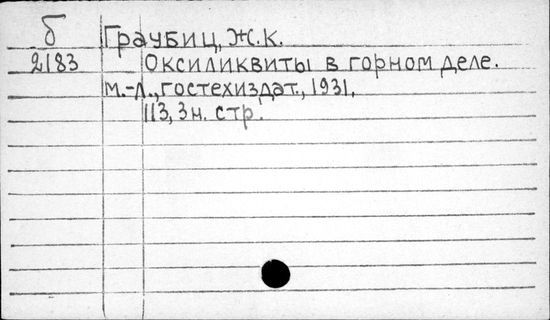 б Граубиц, Ж.К.
2183 Оксиликвиты в горном деле.
М.-Л., Гостехиздат., 1931.
113, 3 н. стр.